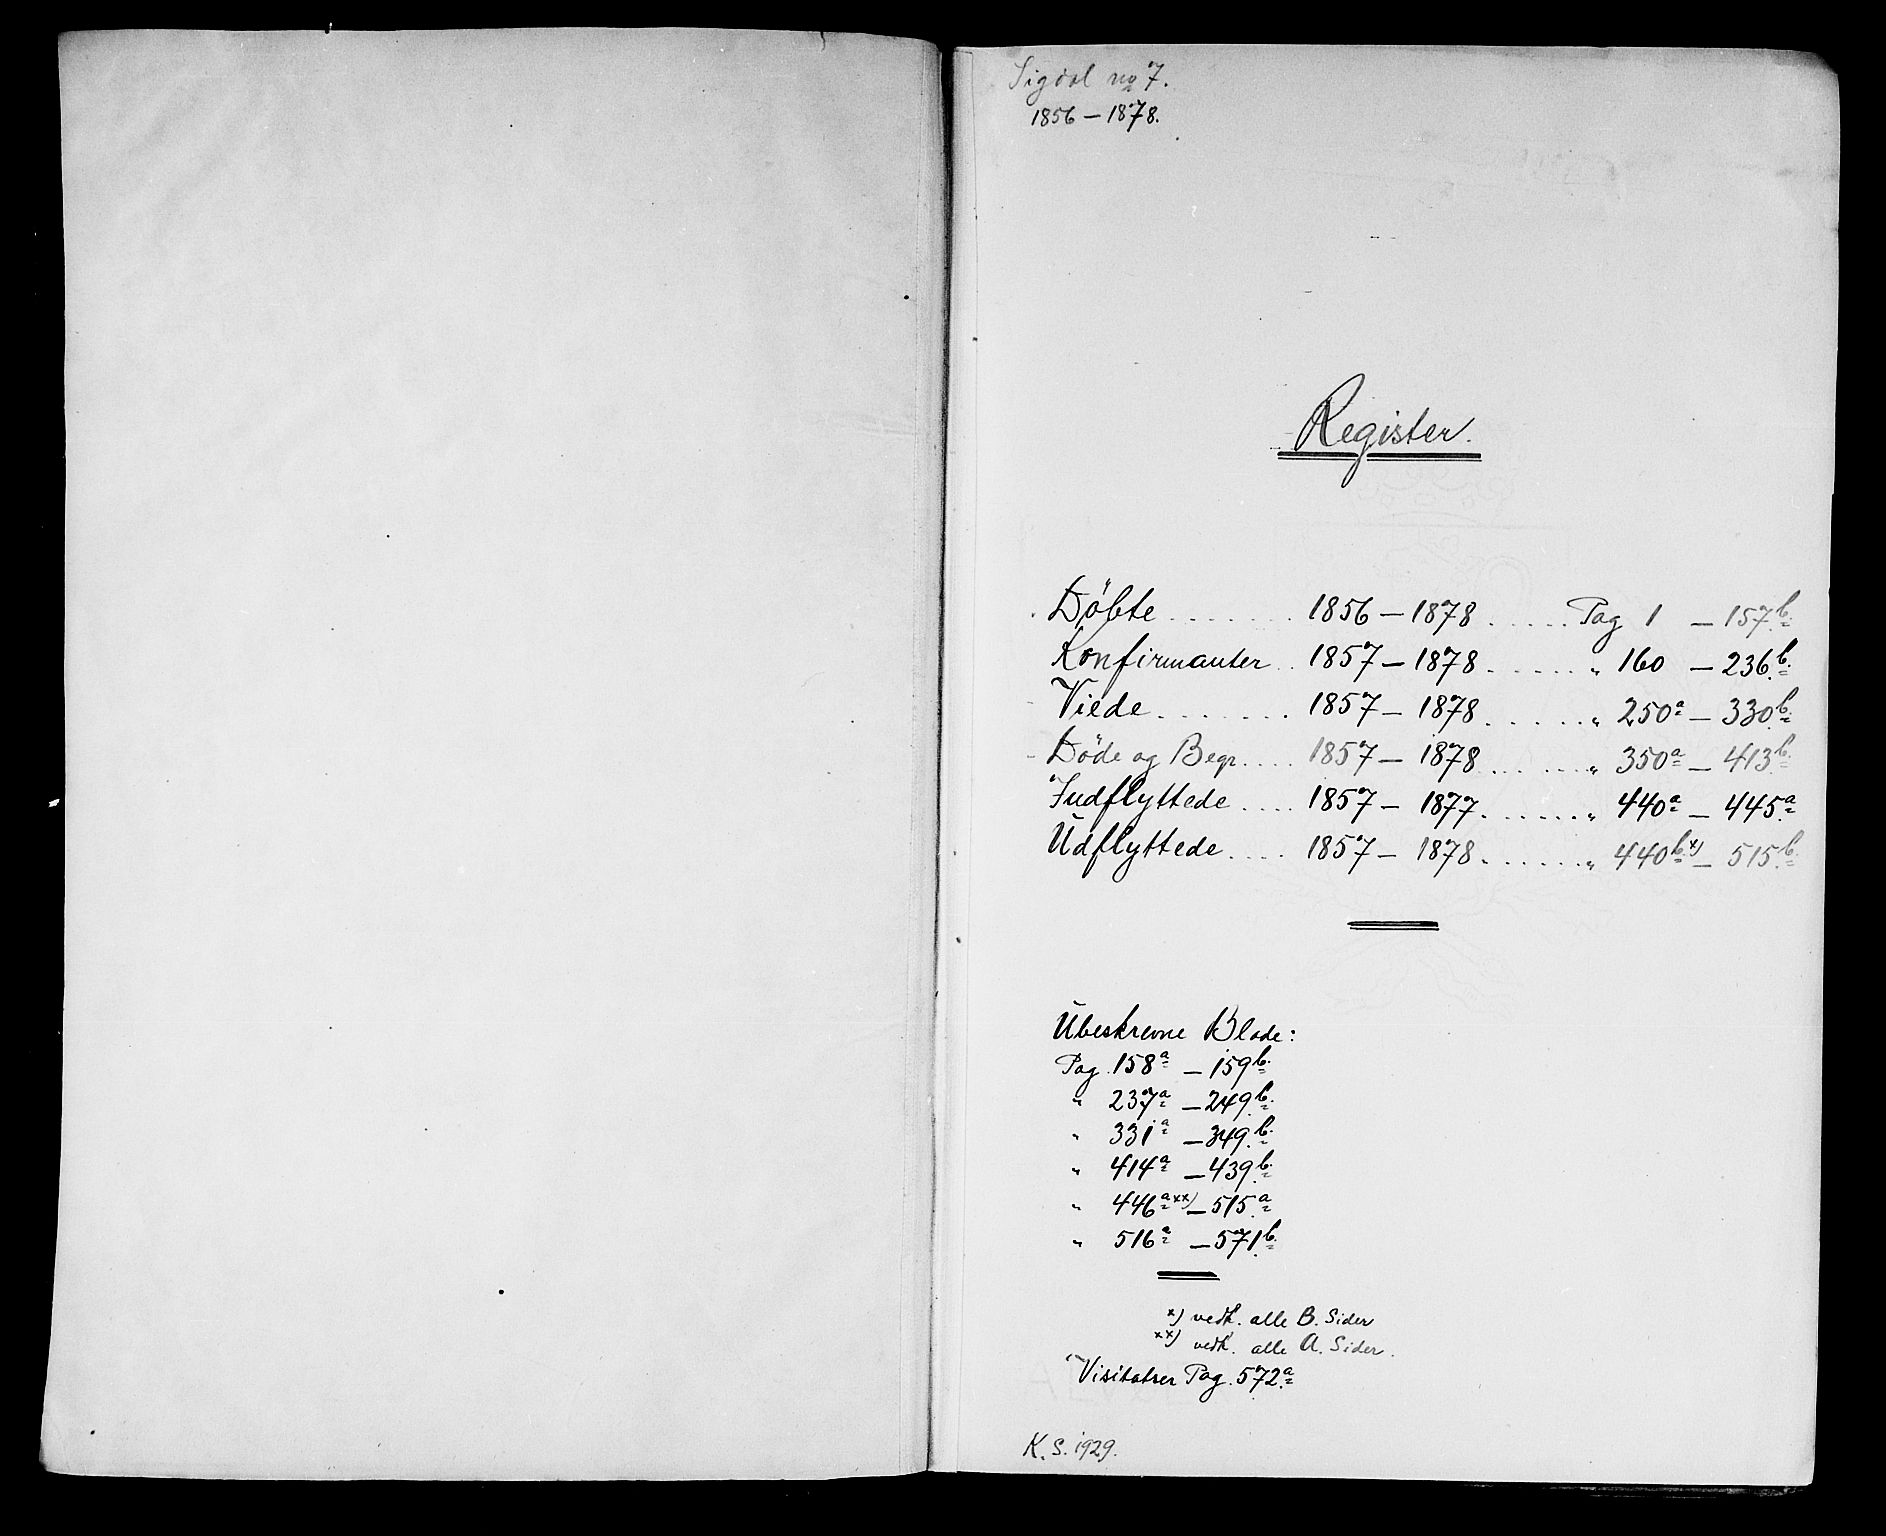 Sigdal no 7.
1856 – 1878.
Register.
Döbte ....... 1856 – 1878 ..... Pag 1 – 157b.
Konfirmanter .. 1857 – 1878 ..... " 160 – 236b.
Viede ....... 1857 – 1878 ..... " 250a – 330b.
Döde og Begr. .... 1857 – 1878 ..... " 350a – 413b.
Indflyttede .... 1857 – 1877 ...... " 440a – 445a
Udflyttede .... 1857 – 1878 ...... " 440b x) – 515b.
Ubeskrevne Blade:
Pag. 158a – 159b.
" 237a – 249b.
" 331a – 349b.
" 414a – 439b.
" 446a xx) – 515a
" 516a – 571b.
x) vedk. alle B. Sider
xx) vedk. alle A. Sider.
Visitatser Pag. 572a
K. S. 1929.